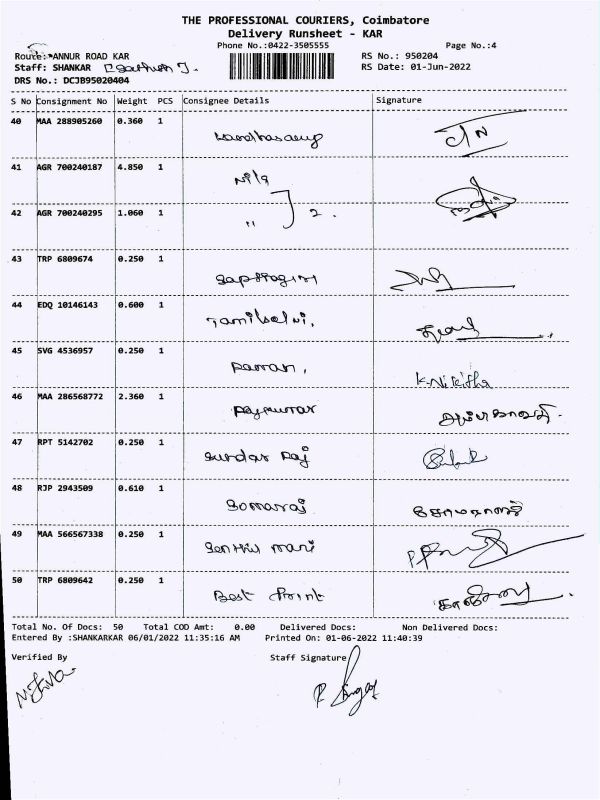 THE PROFESSIONAL COURIERS, Coimbatore
Delivery Runsheet - KAR
Phone No.:0422-3505555 Page No.:4
Route: ANNUR ROAD KAR RS No.: 950204
Staff: SHANKAR RS Date: 01-Jun-2022
DRS No.: DCJB95020404
S No Consignment No Weight PCS Consignee Details Signature
40 MAA 288905260 0.360 1
41 AGR 700240187 4.850 1
Nila
42 AGR 700240295 1.060 1
" 2.
43 TRP 6809674 0.250 1
44 EDQ 10146143 0.600 1
Tamilselvi,
45 SVG 4536957 0.250 1
Pavan, K.Nikitha
46 MAA 286568772 2.360 1
Rajkumar
47 RPT 5142702 0.250 1
Sundar Raj
48 RJP 2943509 0.610 1
Somaraj சோமராஜ்
49 MAA 566567338 0.250 1
Senthil mari
50 TRP 6809642 0.250 1
Best Print
Total No. Of Docs: 50 Total COD Amt: 0.00 Delivered Docs: Non Delivered Docs:
Entered By :SHANKARKAR 06/01/2022 11:35:16 AM Printed On: 01-06-2022 11:40:39
Verified By Staff Signature